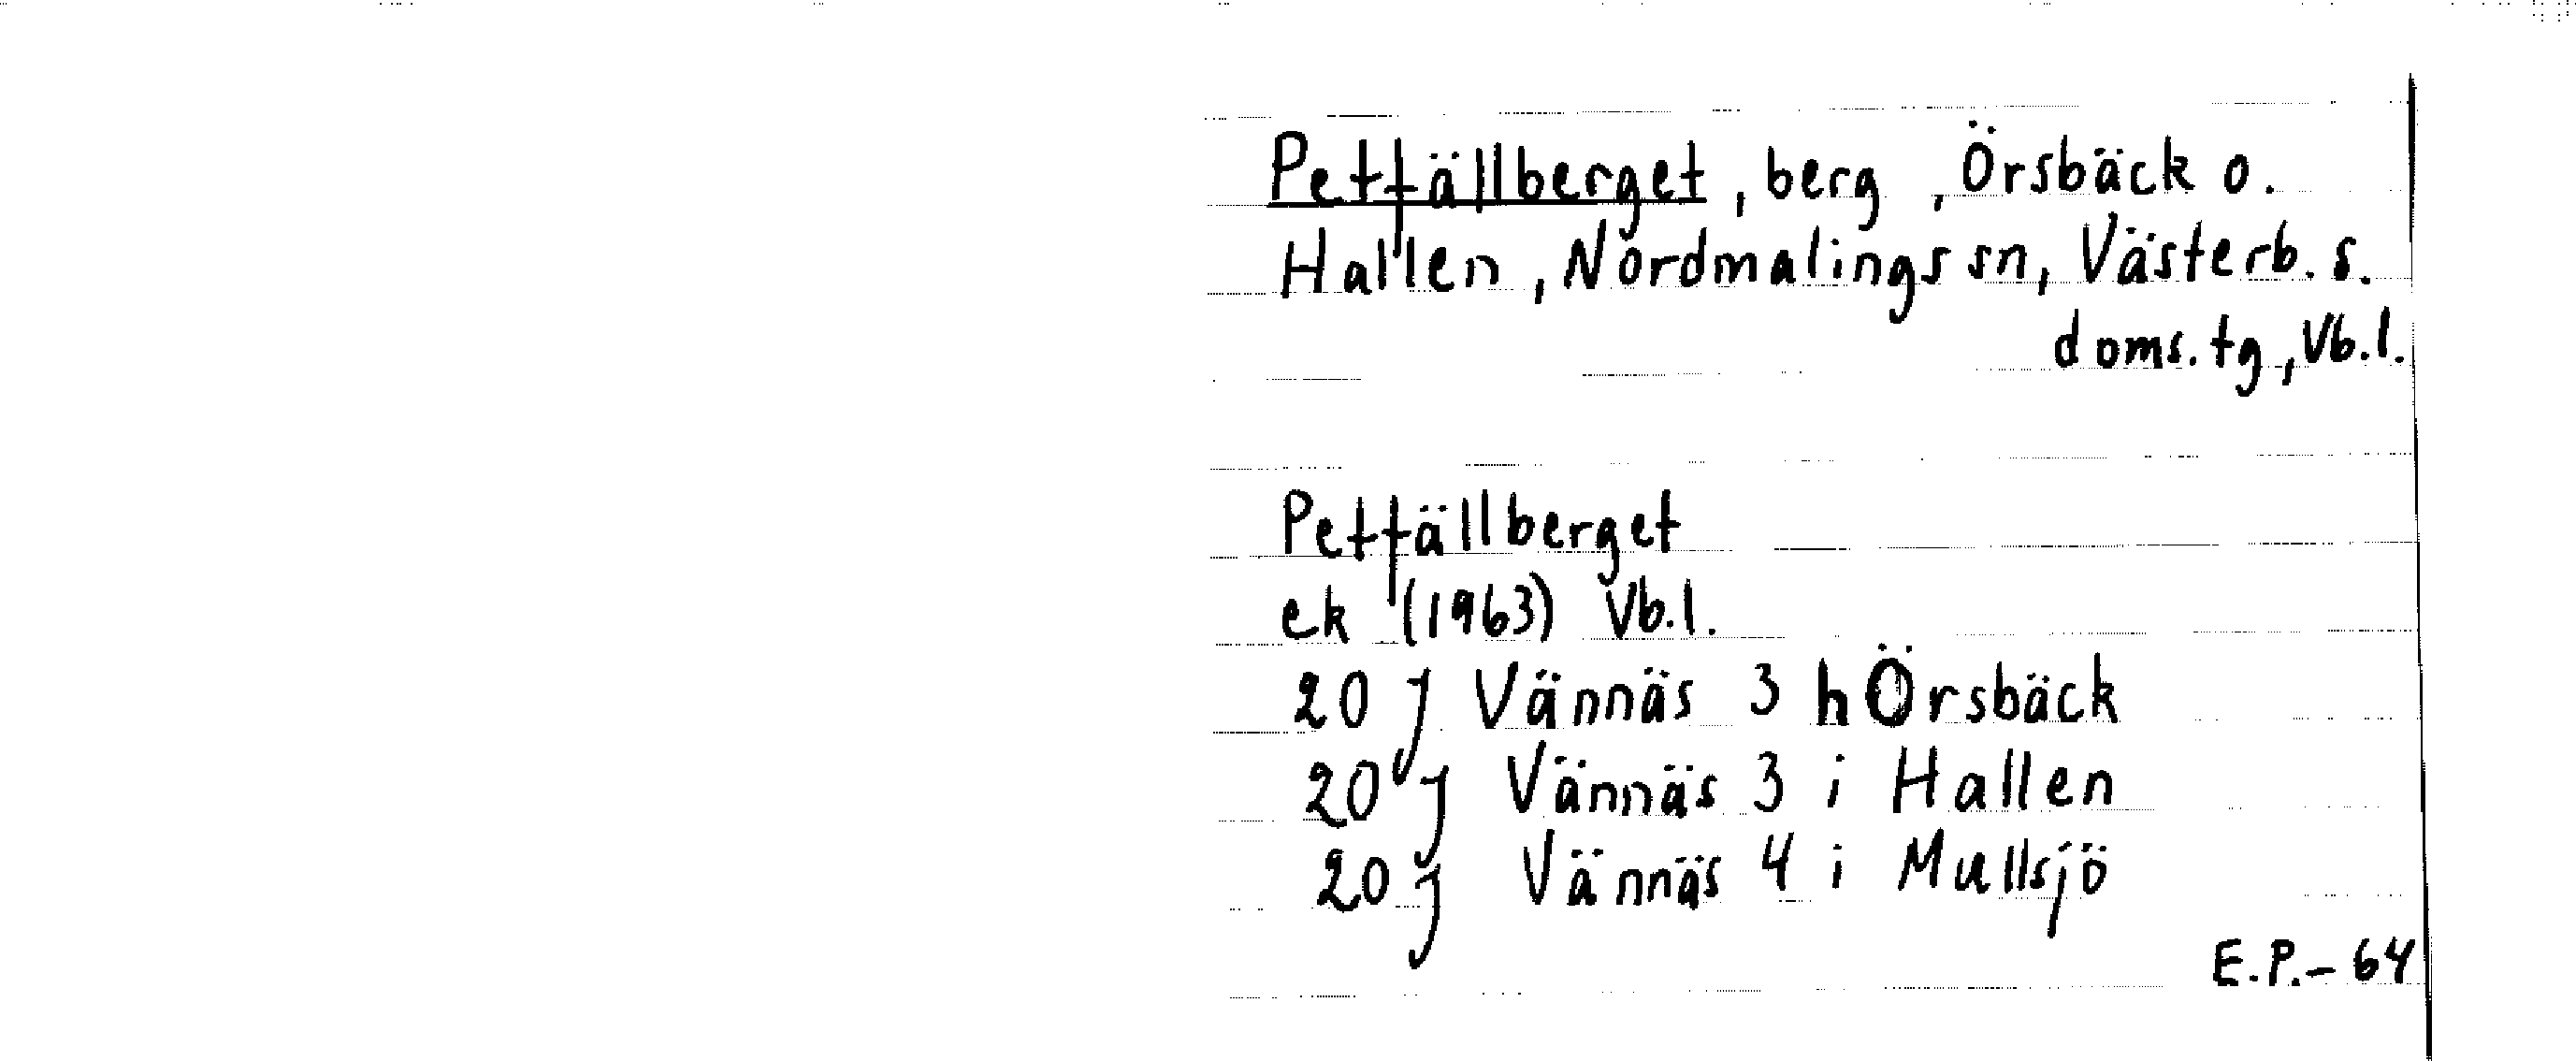 Petfällberget, berg, Örsbäck o.
Hallen, Nordmalings sn, Västerb. s.
doms. tg, Vb. l.
Petfällberget
ek (1963) Vb. l.
20 J Vännäs 3 h Örsbäck
20 J Vännäs 3 i Hallen
20 J Vännäs 4 i Mullsjö
E.P.-64